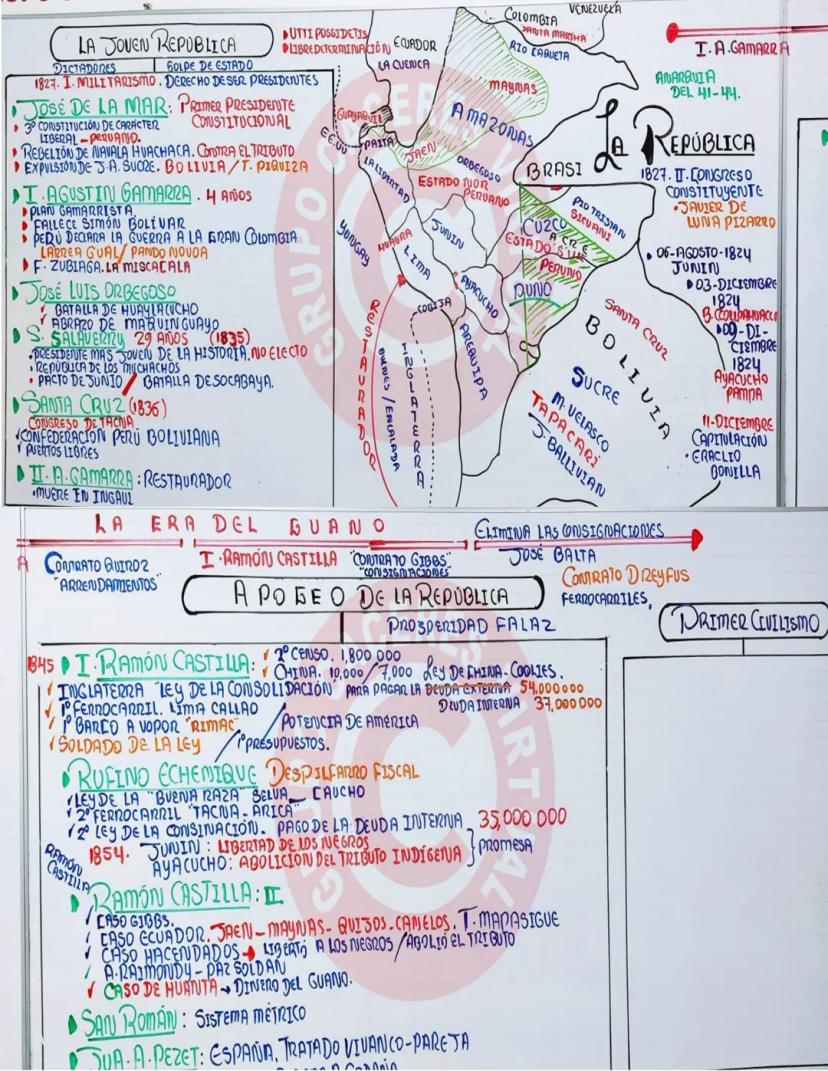 LA JOVEN REPÚBLICA
DICTADORES GOLPE DE ESTADO
1827. I. MILITARISMO. DERECHO DE SER PRESIDENTES
JOSÉ DE LA MAR: PRIMER PRESIDENTE
CONSTITUCIONAL
3º CONSTITUCIÓN DE CARÁCTER
LIBERAL - PERUANO.
REBELIÓN DE NAVALA HUACHACA. CONTRA EL TRIBUTO
EXPULSIÓN DE J.A. SUCRE. BOLIVIA / T. PIQUIZA
I. AGUSTIN GAMARRA. 4 AÑOS
PLAN GAMARRISTA
FALLECE SIMÓN BOLÍVAR
PERÚ DECLARA LA GUERRA A LA GRAN COLOMBIA
LARREA GUAL / PANDO NOVOA
F. ZUBIAGA. LA MISCACALA
JOSÉ LUIS ORBEGOSO
BATALLA DE HUAYLACUCHO
ABRAZO DE MAQUINGUAYO
S. SALAVERRY 29 AÑOS (1835)
PRESIDENTE MAS JOVEN DE LA HISTORIA. NO ELECTO
REPÚBLICA DE LOS MUCHACHOS
PACTO DE JUNIO / BATALLA DE SOCABAYA.
SANTA CRUZ (1836)
CONGRESO DE TACNA
CONFEDERACIÓN PERÚ BOLIVIANA
PUERTOS LIBRES
II. A. GAMARRA: RESTAURADOR
MUERE EN INGAUI
UTTI POSSIDETIS
LIBRE DETERMINACIÓN
ECUADOR
LA CUENCA
COLOMBIA
VENEZUELA
SANTA MARTHA
RIO CAQUETA
MAYNAS
AMAZONAS
GUAYAQUIL
EE.UU
PAITA
JAEN
LA LIBERTAD
ORBEGOSO
ESTADO NOR
PERUANO
BRASI
YUNGAY
HUAURA
LIMA
JUNIN
AYACUCHO
CUZCO
ACRE
ESTADO SUR
PERUNO
PUNO
PIO TRISTAN
SICUANI
COBIJA
AREQUIPA
RESTAURADOR
BULNES / ENCALADA
INGLATERRA
SANTA CRUZ
BOLIVIA
SUCRE
M. VELASCO
TAPACARÍ
J. BALLIVIAN
I. A. GAMARRA
ANARQUIA
DEL 41-44.
LA REPÚBLICA
1827. II. CONGRESO
CONSTITUYENTE
JAVIER DE
LUNA PIZARRO
06-AGOSTO-1824
JUNIN
03-DICIEMBRE
1824
09-DI-
CIEMBRE
1824
AYACUCHO
PAMPA
11-DICIEMBRE
CAPITULACIÓN
ERACLIO
BONILLA
LA ERA DEL GUANO
CONTRATO QUIROZ
"ARRENDAMIENTOS"
I. RAMÓN CASTILLA "CONTRATO GIBBS"
"CONSIGNACIONES
ELIMINA LAS CONSIGNACIONES
JOSÉ BALTA
CONTRATO DREYFUS
FERROCARRILES,
APOGEO DE LA REPÚBLICA
PROSPERIDAD FALAZ
PRIMER CIVILISMO
1845 I. RAMÓN CASTILLA: 2º CENSO. 1,800 000
CHINA. 10,000 / 7,000 LEY DE CHINA. COOLIES.
INGLATERRA "LEY DE LA CONSOLIDACIÓN" PARA PAGAR LA DEUDA EXTERNA 54,000 000
DEUDA INTERNA 37,000 000
1º FERROCARRIL. LIMA CALLAO
1º BARCO A VAPOR "RIMAC"
POTENCIA DE AMÉRICA
SOLDADO DE LA LEY
1º PRESUPUESTOS.
RUFINO ECHENIQUE DESPILFARRO FISCAL
LEY DE LA "BUENA RAZA" SELVA CAUCHO
2º FERROCARRIL "TACNA-ARICA"
2º LEY DE LA CONSINACIÓN. PAGO DE LA DEUDA INTERNA 35,000 000
1854. JUNIN: LIBERTAD DE LOS NEGROS
AYACUCHO: ABOLICION DEL TRIBUTO INDÍGENA
PROMESA
RAMÓN
CASTILLA
RAMÓN CASTILLA: II.
CASO GIBBS.
CASO ECUADOR. JAEN-MAYNAS-QUIJOS-CANELOS. T. MAPASIGUE
CASO HACENDADOS → LIBERTÓ A LOS NEGROS / ABOLIÓ EL TRIBUTO
A. RAIMONDY-PAZ SOLDAN
CASO DE HUANTA → DINERO DEL GUANO.
SAN ROMÁN: SISTEMA MÉTRICO
JUA. A. PEZET: ESPAÑA, TRATADO VIVANCO-PAREJA